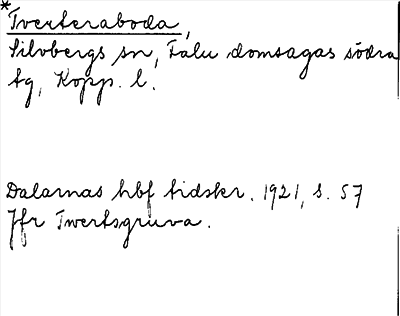 *Tverteraboda,
Silvbergs sn, Falu domsagas södra
tg, Kopp. l.
Dalarnas hbf tidskr. 1921, s. 57
Jfr Twertsgruva.